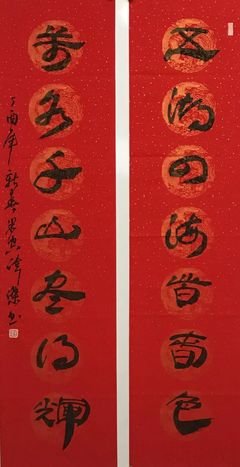 五湖四海皆春色
萬水千山尽得輝
丁酉年新春 书